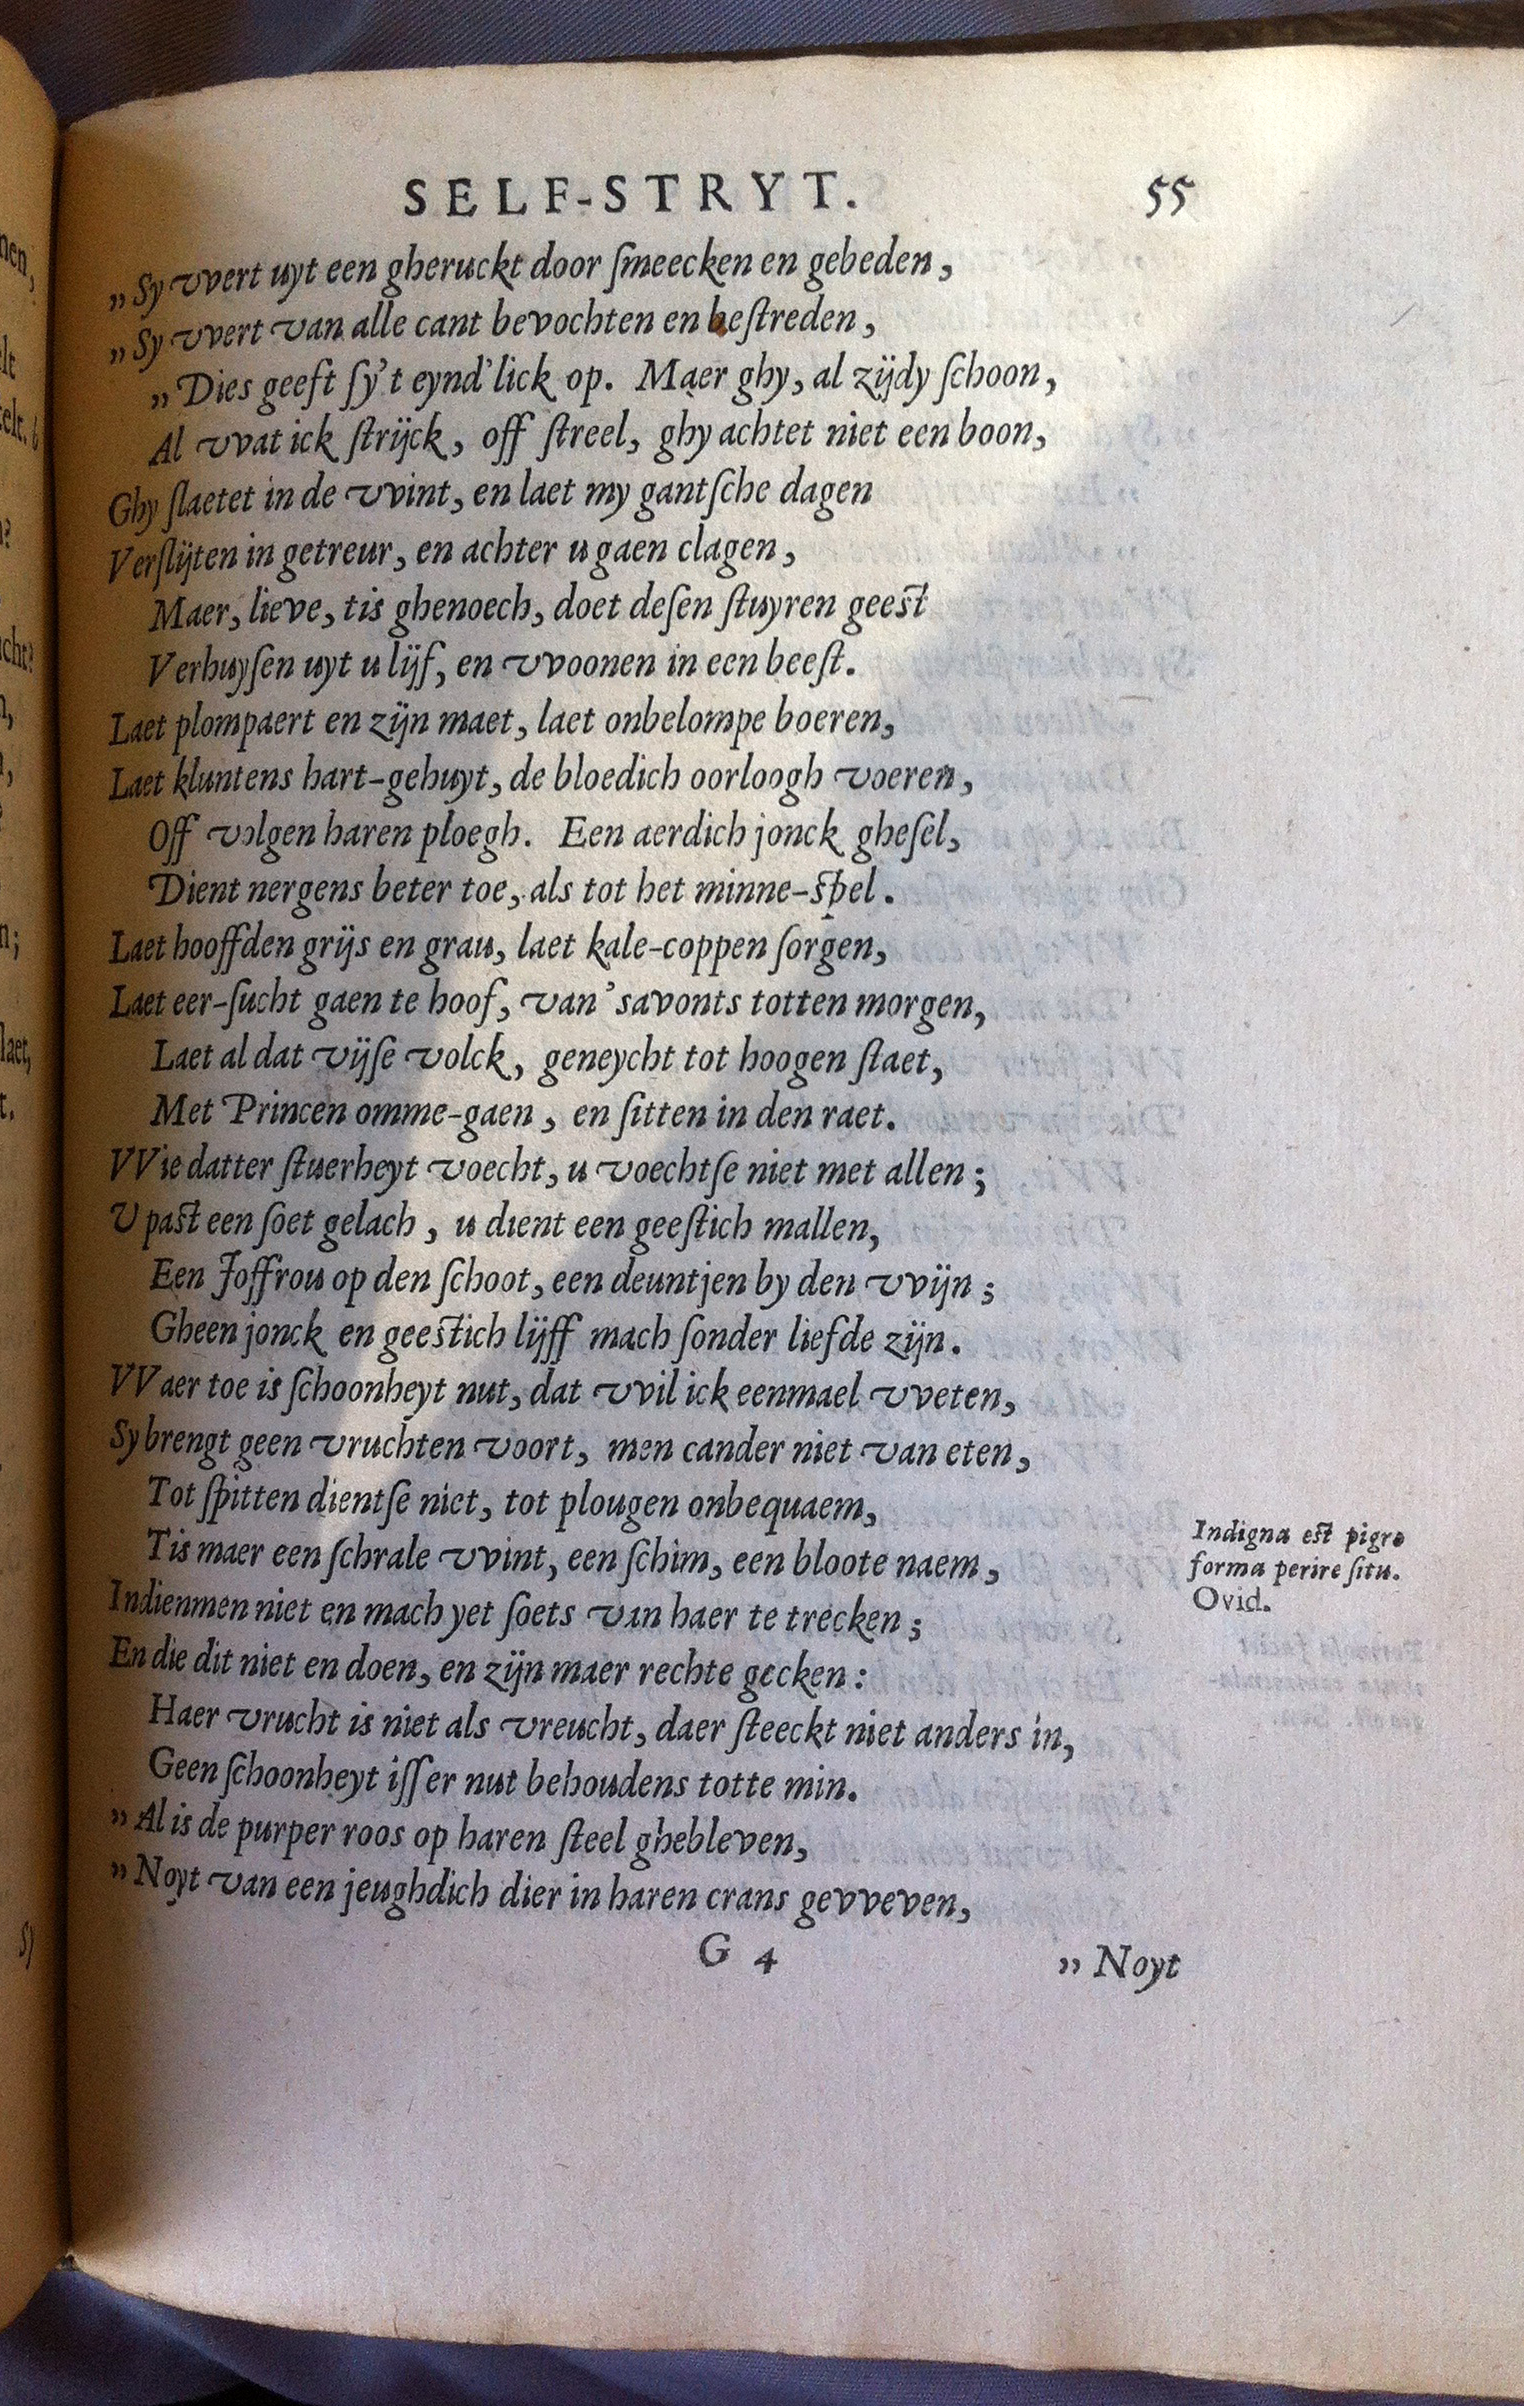 SELF-STRYT. 55
„Sy vvert uyt een gheruckt door ſmeecken en gebeden,
„Sy vvert van alle cant bevochten en beſtreden,
„Dies geeft ſy't eynd'lick op. Maer ghy, al zijdy ſchoon,
Al vvat ick ſtrijck, off ſtreel, ghy achtet niet een boon,
Ghy ſlaetet in de vvint, en laet my gantſche dagen
Verſlijten in getreur, en achter u gaen clagen,
Maer, lieve, tis ghenoech, doet deſen ſtuyren geest
Verhuyſen uyt u lijf, en vvoonen in een beeſt.
Laet plompaert en zijn maet, laet onbelompe boeren,
Laet kluntens hart-gehuyt, de bloedich oorloogh voeren,
Off volgen haren ploegh. Een aerdich jonck gheſel,
Dient nergens beter toe, als tot het minne-spel.
Laet hooffden grijs en grau, laet kale-coppen ſorgen,
Laet eer-ſucht gaen te hoof, van 'savonts totten morgen,
Laet al dat vijſe volck, geneycht tot hoogen ſtaet,
Met Princen omme-gaen, en ſitten in den raet.
VVie datter ſtuerheyt voecht, u voechtſe niet met allen;
V past een ſoet gelach, u dient een geeſtich mallen,
Een Joffrou op den ſchoot, een deuntjen by den vvijn;
Gheen jonck en geestich lijff mach ſonder liefde zijn.
VVaer toe is ſchoonheyt nut, dat vvil ick eenmael vveten,
Sy brengt geen vruchten voort, men cander niet van eten,
Tot ſpitten dientſe niet, tot plougen onbequaem,
Tis maer een ſchrale vvint, een ſchim, een bloote naem,
Indienmen niet en mach yet ſoets van haer te trecken;
En die dit niet en doen, en zijn maer rechte gecken:
Haer vrucht is niet als vreucht, daer ſteeckt niet anders in,
Geen ſchoonheyt iſſer nut behoudens totte min.
„Al is de purper roos op haren ſteel ghebleven,
„Noyt van een jeughdich dier in haren crans gevveven,
G 4 „Noyt
Indigna est pigro
forma perire ſitu.
Ovid.